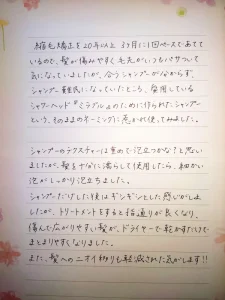 縮毛矯正を20年以上 3ヶ月に1回ペースであてて
いるので、髪が傷みやすく毛先がいつもパサついて
気になっていましたが、合うシャンプーが分からず、
シャンプー難民になっていたところ、愛用している
シャワーヘッド『ミラブル』のために作られたシャンプー
という、そのままのネーミングに惹かれ使ってみました。
シャンプーのテクスチャーは重めで泡立つかな?と思い
ましたが、髪を十分に濡らして使用したら、細かい
泡がしっかり泡立ちました。
シャンプーだけした後はギシギシとした感じがしま
したが、トリートメントをすると指通りが良くなり、
傷んで広がりやすい髪が、ドライヤーで乾かすだけで
まとまりやすくなりました。
また、髪へのニオイ移りも軽減された気がします!!